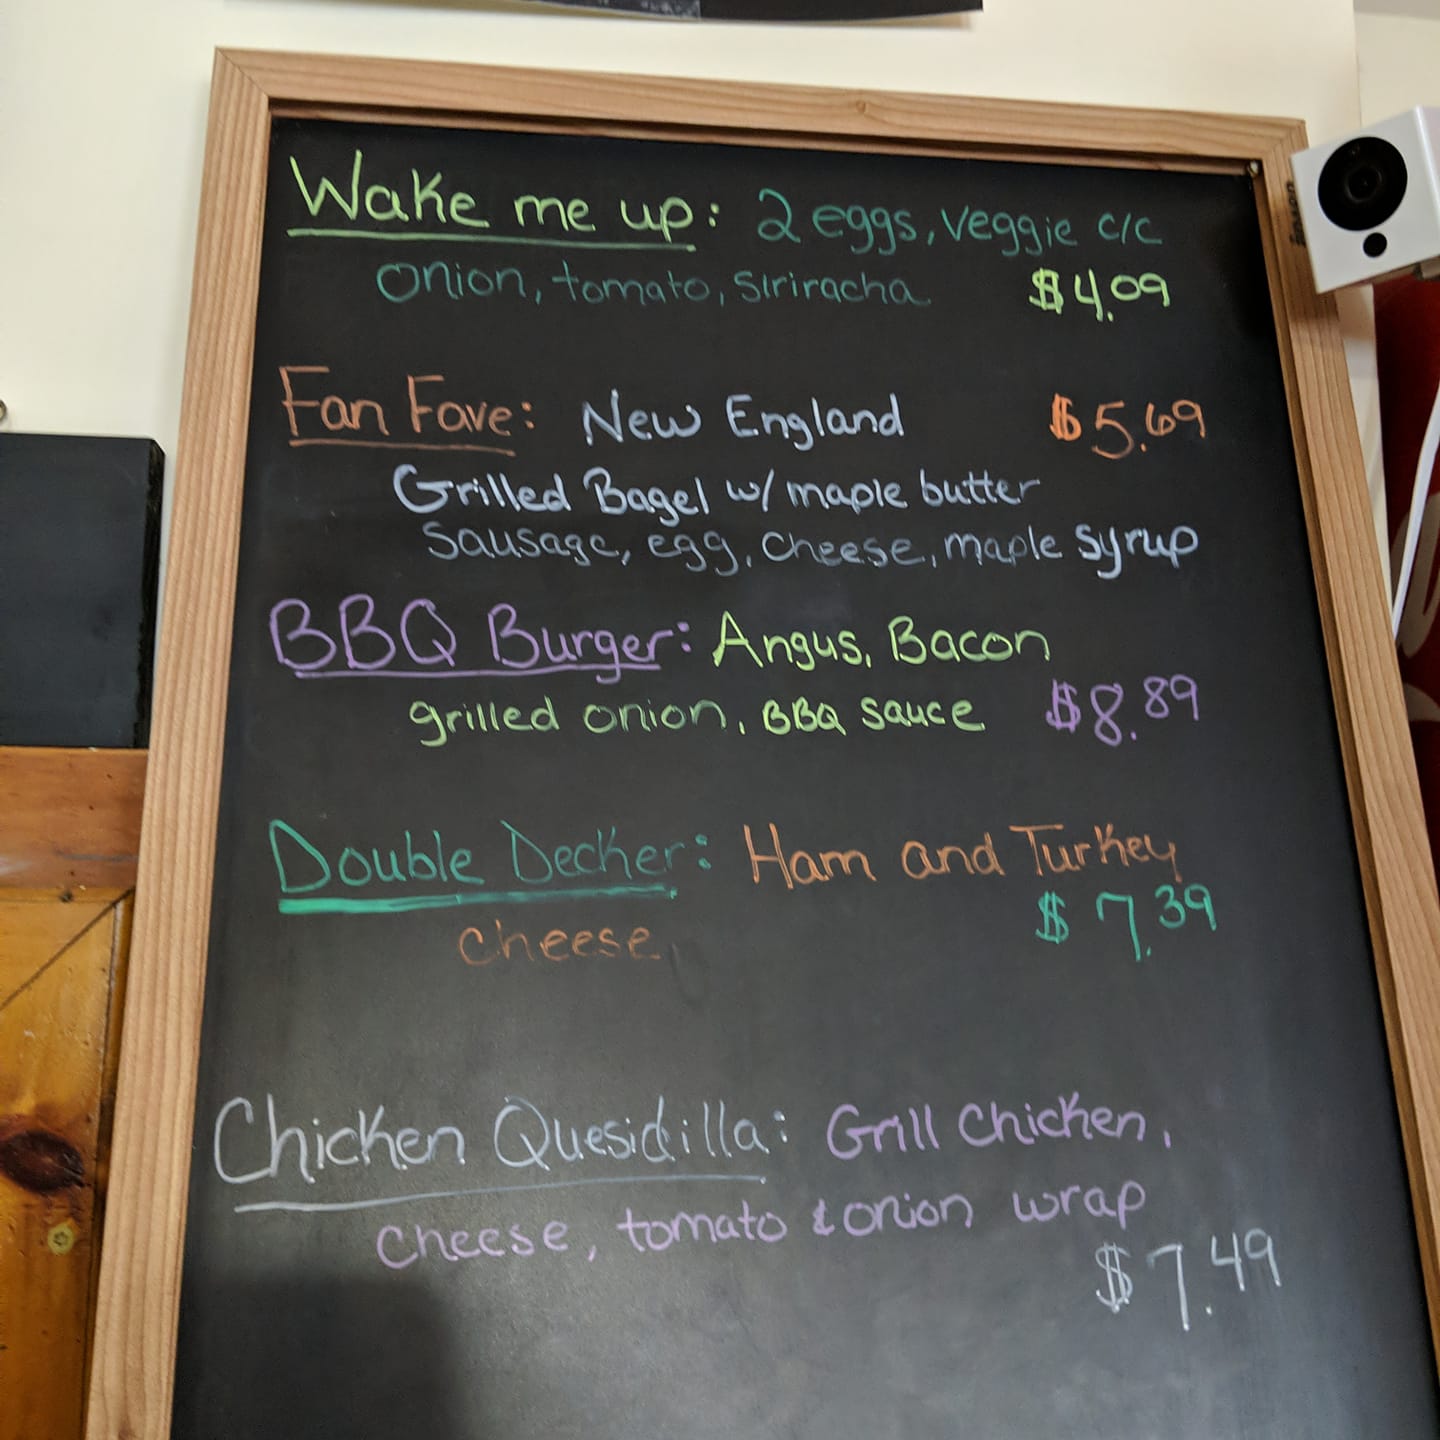 Wake me up: 2 eggs, veggie c/c
onion, tomato, siriracha $4.09
Fan Fave: New England $5.69
Grilled Bagel w/ maple butter
Sausage, egg, cheese, maple syrup
BBQ Burger: Angus, Bacon
grilled onion, BBQ sauce $8.89
Double Decker: Ham and Turkey
cheese $7.39
Chicken Quesidilla: Grill Chicken,
cheese, tomato & onion wrap
$7.49